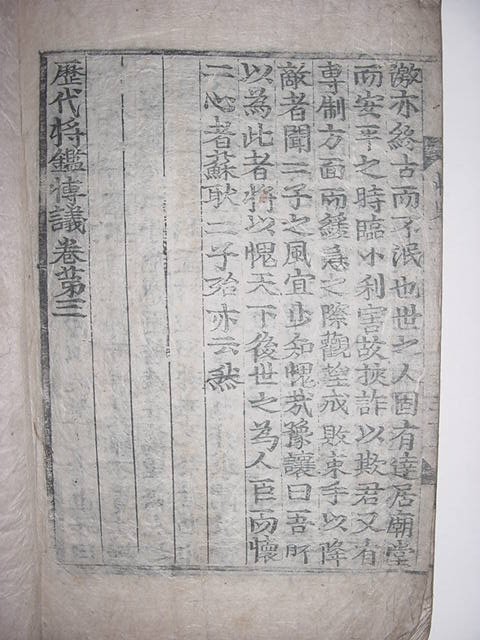 激亦終古而不泯也世之人固有達居廟堂
而安平之時臨小利害故挾詐以欺君又有
專制方面而緩急之際觀望成敗束手以降
敵者聞二子之風宜少知愧哉豫讓曰吾所
以為此者將以愧天下後世之為人臣而懷
二心者蘇耿二子殆亦云然
歷代将鑑博議卷苐三